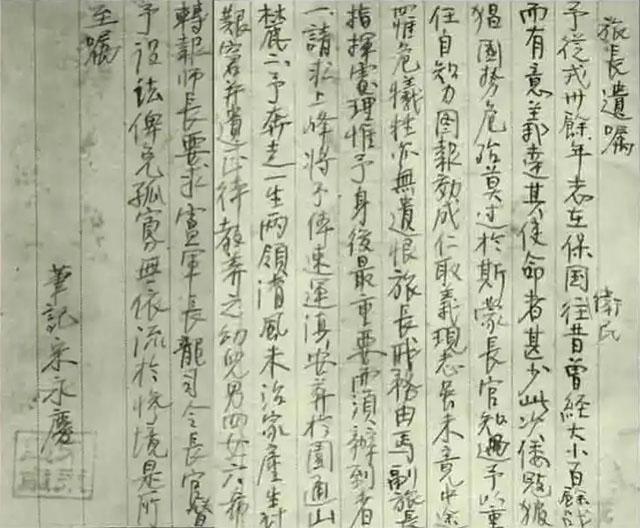 旅長遺囑
予從戎卅餘年志在保国衛民往昔曾經大小百餘戰
而有意義達其使命者甚少此次倭寇猖
猖国勢危殆莫过於斯蒙長官知遇予以重
任自力图報効成仁取義現志未竟中途
罹危犧牲亦無遺恨旅長職務由馬副旅長
指揮處理惟予身後最重要而須辦到者
一請求上峰將予速運滇安葬於圓通山
麓二予奔走一生两領清風未治家產生計
艱窘并遺下待教养之幼兒男四女六希
轉報師長要求盧軍長龍司令長官督
予設法俾免孤寡無依流於境是所
至囑
筆記宋永慶